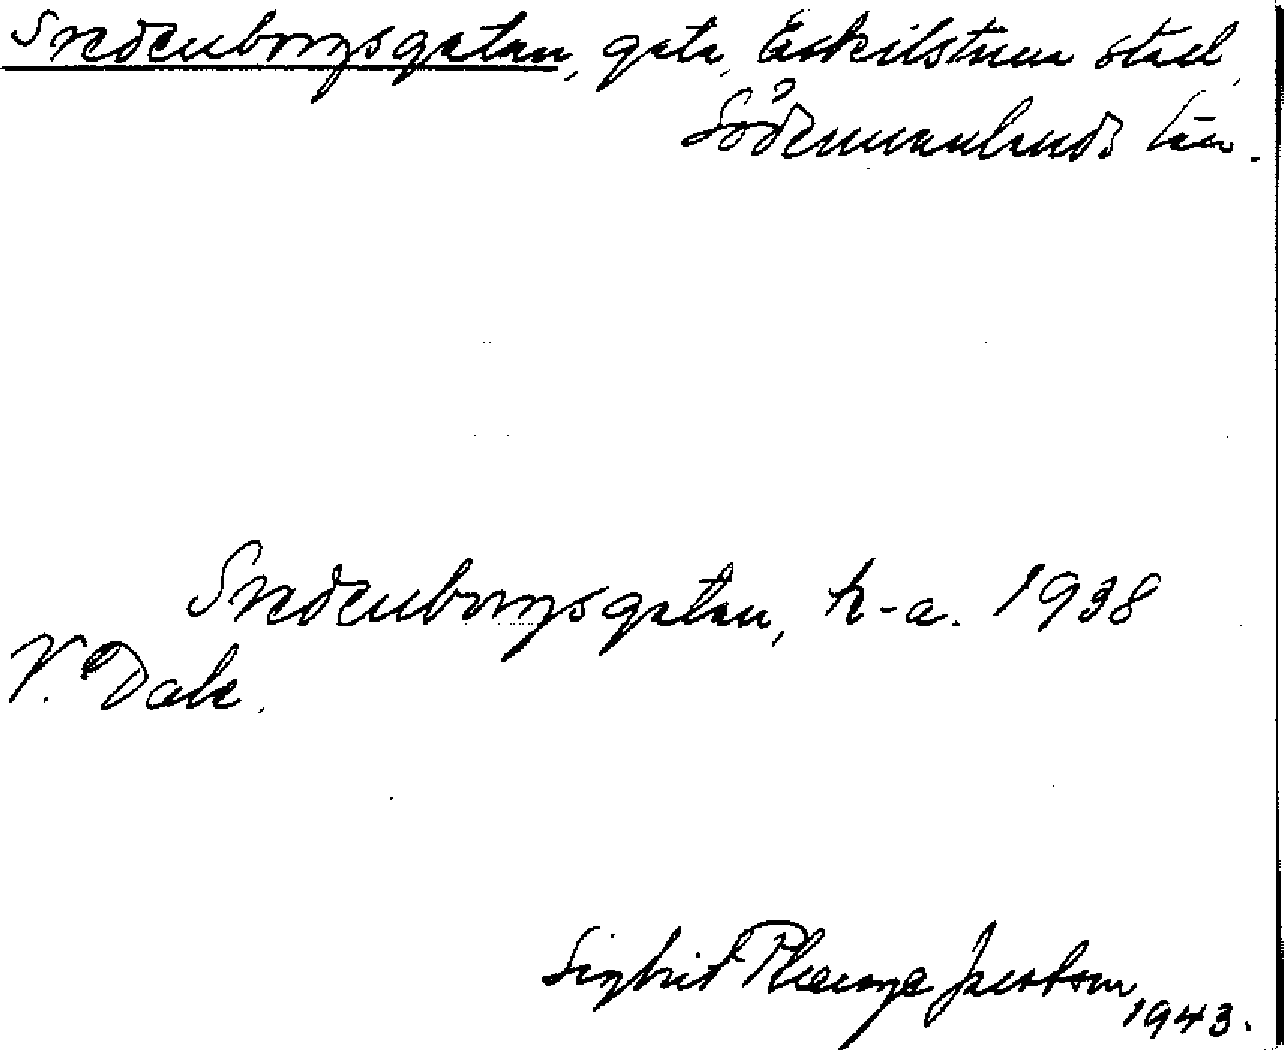 Svedenborgsgatan, gata, Eskilstuna stad,
Södermanlands län.
Svedenborgsgatan, k-a. 1938
V. Dale.
Sigbrit Plænge Jacobson
1943.